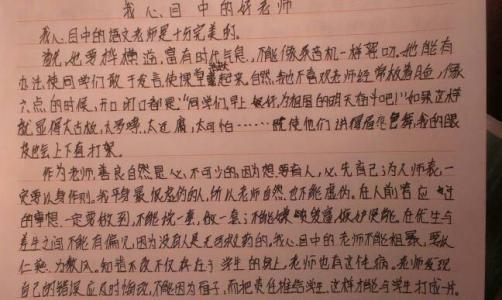 我心目中的好老师
我心目中的语文老师是十分完美的。
她要博学，富有时代气息，不能像录音机一样，她能有
办法使同学们敢于发言，使课堂起来。自然，我也不喜欢老师经常板着脸，像
六点的时候，开口闭口都是"同学们早上好，为祖国的明天奋斗吧！"如果这样
就显得太古板，太，太迂腐，太可怕……使他们讲得眉飞色舞，我的眼
皮也会上下直打架。
作为老师，善良自然是必不可少的，因为想要育人，必先自己为人师表，一
定要以身作则。我平身最恨虚伪的人，所以老师自然也不能虚伪。在人前答应过
的事想一定要做到，不能说一套，做一套；不能。在优生与
差生之间不能有偏见，因为没有人是无可救药的。我心目中的老师不能粗暴，要以
仁慈为教风。知错不改不仅存在于学生的身上，老师也有这传病。老师发现
自己的错误应及时悔改，不能因为面子，而把责任推给学生，这样才能与学生打成一片。